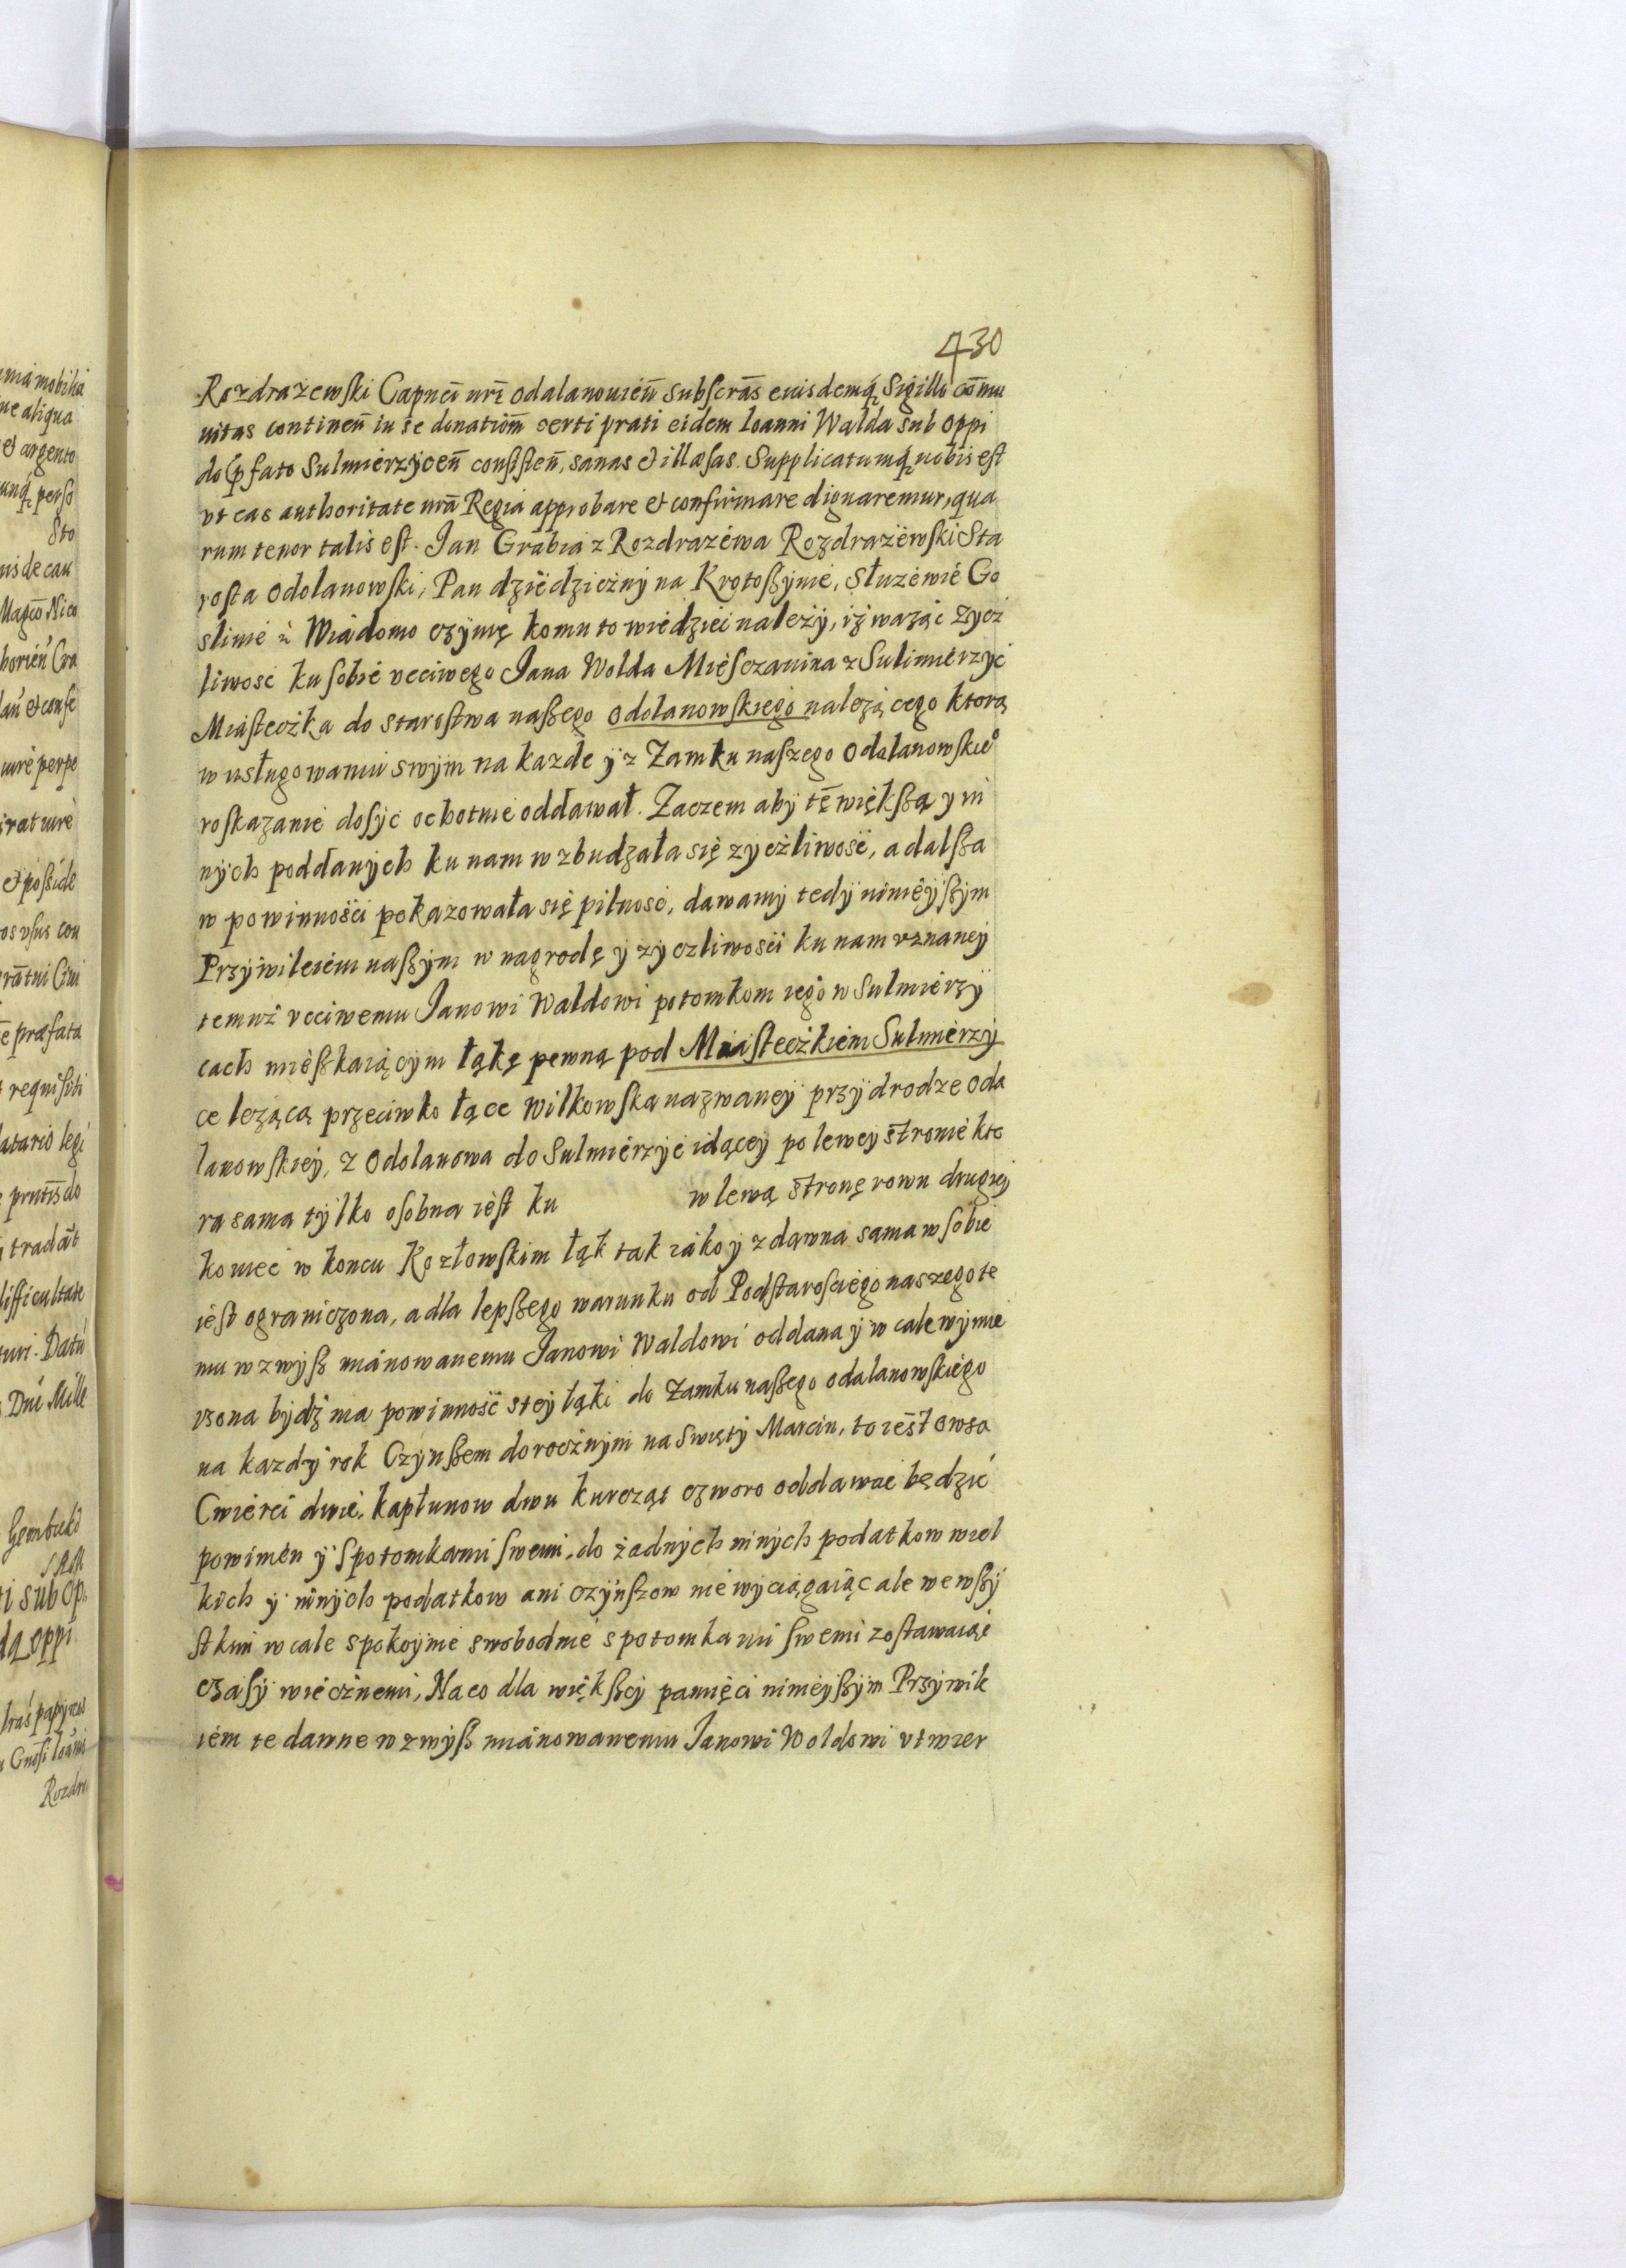 430
Rozdrazewski Capnei nri Odalanouień subscras eiusdemq Sigillo comu
nitas continen in se donationm certi prati eidem Ioanni Walda sub Oppi
do pfato Sulmierzycen consisten, sanas et illæsas. Supplicatumq nobis est
vt eas authoritate nra Regia approbare et confirmare dignaremur, qua
rum tenor talis est. Jan Grabia z Rozdrazewa Rozdrazewski Sta
rosta Odolanowski, Pan dziedziczny na Krotoszynie, Słuzewie Go
slinie Wiadomo czynię komu to wiedziec nalezy, iz waząc zycz
liwosc ku sobie vcciwego Jana Wolda Miesczanina z Sulimierzyc
Miasteczka do starostwa naszego Odolanowskiego nalezącego ktorą
w usługowaniu swym na kazde y z Zamku naszego Odolanowskie°
roskazanie dosyc ochotnie oddawał. Zaczem aby tę większą y in
nych poddanych ku nam wzbudzała się zyczliwosc, a dalsza
w powinnosci pokazowała się pilnosc, dawamy tedy ninieyszym
Przywileiem naszym w nagrodę y zyczliwosci ku nam vznaney
temuz vcciwemu Janowi Waldowi potomkom iego w Sulmierzy
cach mieszkaiącym łąkę pewną pod Miasteczkiem Sulmierzy
ce lezącą przeciwko łące Wilkowska nazwaney przy drodze Oda
lanowskiey, z Odolanowa do Sulmierzyc idącey po lewey stronie kto
ra sama tylko osobna iest ku w lewą stronę rowu drugiey
koniec w koncu Kozłowskim łąk tak iako y zdawna sama w sobie
iest ograniczona, a dla lepszego warunku od Podstarosciego naszego te
mu wzwysz mianowanemu Janowi Waldowi oddana y w cale wymie
rzona bydz ma powinnosc s tey łąki do Zamku naszego odalanowskiego
na kazdy rok Czynszem dorocznym na Swięty Marcin, to iest owsa
Cwierci dwie, kapłunow dwu kurcząt czworo oddawac będzie
powinien y spotomkami swemi, do żadnych innych podatkow wiel
kich y innych podatkow ani czynszow nie wyciągaiąc ale we wszy
stkim w cale spokoynie swobodnie s potomkami swemi zostawaiąc
czasy wiecznemi, Na co dla większey pamięci ninieyszym Przywile
iem te danne wzwysz mianowanemu Janowi Woldowi vtwier